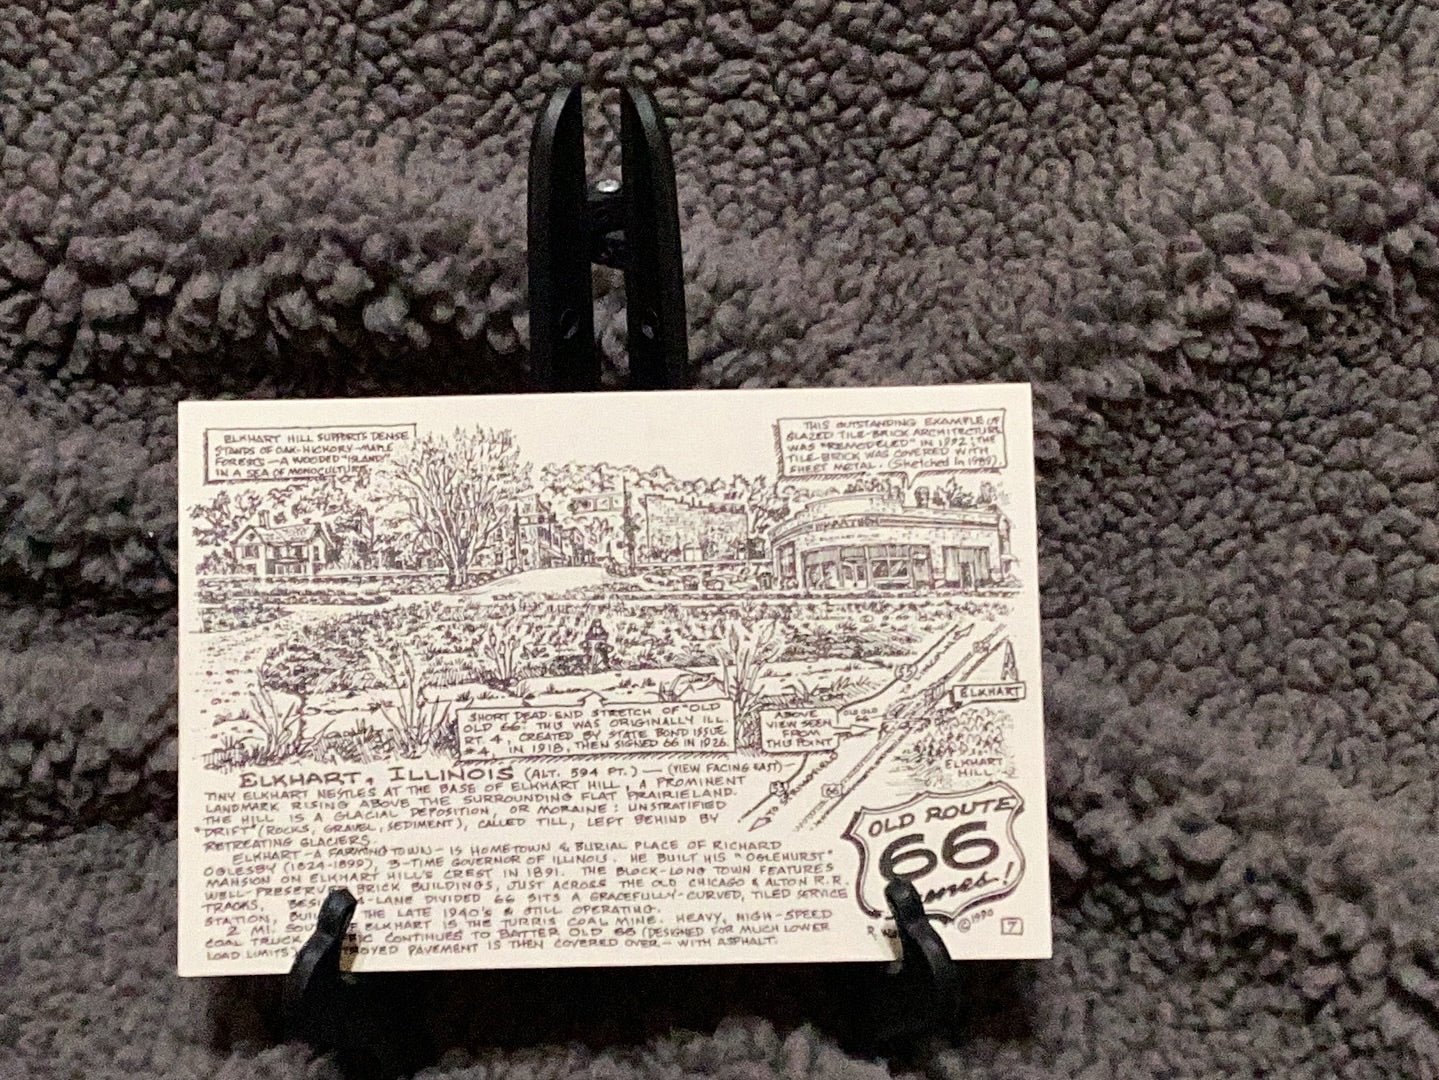 ELKHART HILL SUPPORTS DENSE
STANDS OF OAK-HICKORY-MAPLE
FORESTS — A WOODED "ISLAND"
IN A SEA OF MONOCULTURE.
THIS OUTSTANDING EXAMPLE OF
GLAZED TILE-BRICK ARCHITECTURE
WAS "REMODELED" IN 1992; THE
TILE-BRICK WAS COVERED WITH
SHEET METAL. (Sketched in 1989).
MARATHON
SHORT DEAD-END STRETCH OF "OLD
OLD 66": THIS WAS ORIGINALLY ILL.
RT. 4, CREATED BY STATE BOND ISSUE
#4, IN 1918, THEN SIGNED 66 IN 1926.
ABOVE
VIEW SEEN
FROM
THIS POINT
OLD OLD
66
ELKHART
ELKHART
HILL
TO SPRINGFIELD
66
ELKHART, ILLINOIS (ALT. 594 FT.) — (VIEW FACING EAST) —
TINY ELKHART NESTLES AT THE BASE OF ELKHART HILL, A PROMINENT
LANDMARK RISING ABOVE THE SURROUNDING FLAT PRAIRIELAND.
THE HILL IS A GLACIAL DEPOSITION, OR MORAINE: UNSTRATIFIED
"DRIFT" (ROCKS, GRAVEL, SEDIMENT), CALLED TILL, LEFT BEHIND BY
RETREATING GLACIERS.
ELKHART — A FARMING TOWN — IS HOMETOWN & BURIAL PLACE OF RICHARD
OGLESBY (1824-1899), 3-TIME GOVERNOR OF ILLINOIS. HE BUILT HIS "OGLEHURST"
MANSION ON ELKHART HILL'S CREST IN 1891. THE BLOCK-LONG TOWN FEATURES
WELL-PRESERV BRICK BUILDINGS, JUST ACROSS THE OLD CHICAGO & ALTON R.R.
TRACKS. BESI 4-LANE DIVIDED 66 SITS A GRACEFULLY-CURVED, TILED SERVICE
STATION, BUIL THE LATE 1940'S & STILL OPERATING.
2 MI. SOU F ELKHART IS THE TURRIS COAL MINE. HEAVY, HIGH-SPEED
COAL TRUCK FIC CONTINUES TO BATTER OLD 66 (DESIGNED FOR MUCH LOWER
LOAD LIMITS) TROYED PAVEMENT IS THEN COVERED OVER — WITH ASPHALT.
OLD ROUTE
66
enes!
© 1990
7